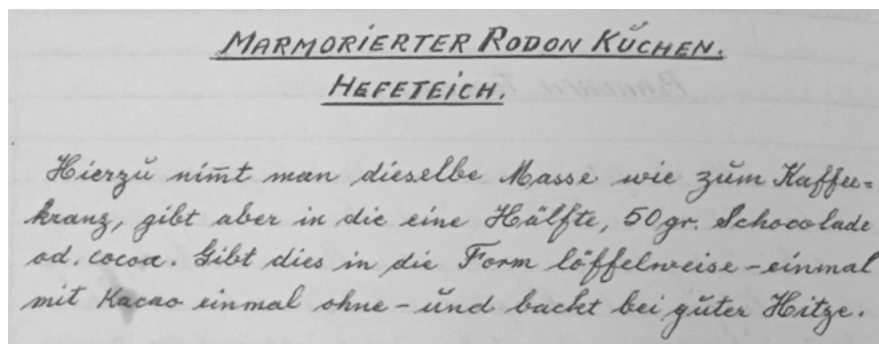 MARMORIERTER RODON KUCHEN.
HEFETEICH.
Hierzu nim̄t man dieselbe Masse wie zum Kaffee=
kranz, gibt aber in die eine Hälfte, 50 gr. Schocolade
od. cocoa. Gibt dies in die Form löffelweise – einmal
mit Kacao einmal ohne – und backt bei guter Hitze.